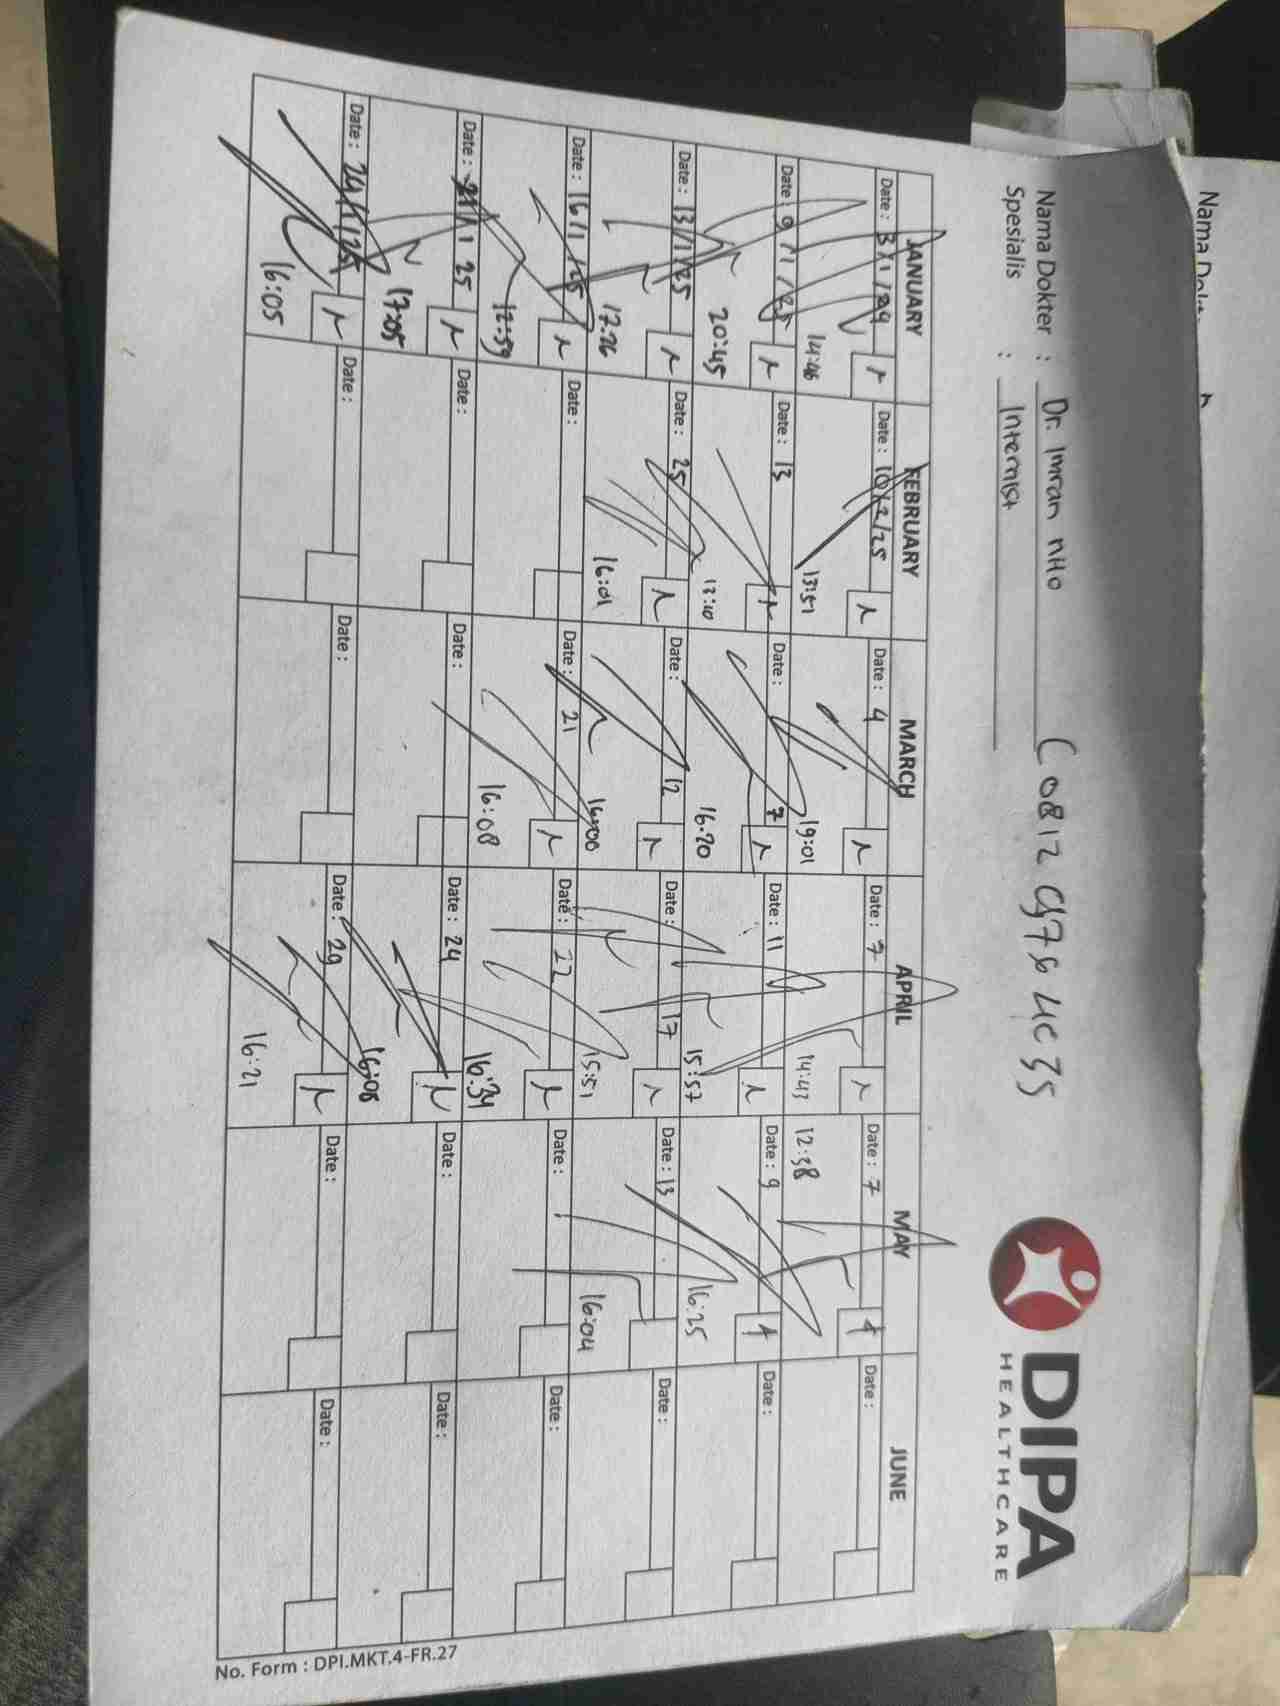 Nama Dokter : Dr. Imran nHo
Spesialis : Internist
DIPA
HEALTHCARE
JANUARY FEBRUARY MARCH APRIL MAY JUNE
Date : 3/1/ Date : 10/2/25 Date : 4 Date : 7 Date : 7 Date :
14:46 13:51 19:01 14:43 12:38
Date : 9/1/25 Date : 13 Date : 7 Date : 11 Date : 9 Date :
20:45 13:10 16.20 15:57 16:25
Date : 13/1/25 Date : 25 Date : 12 Date : 17 Date : 13 Date :
17.26 16:01 16:00 15:51 16:04
Date : 16/1/25 Date : Date : 21 Date : 22 Date : Date :
12:59 16:08 16:34
Date : 21/1 25 Date : Date : Date : 24 Date : Date :
17:05 16:08
Date : 24/1/25 Date : Date : Date : 29 Date : Date :
16:05 16:21
No. Form : DPI.MKT.4-FR.27